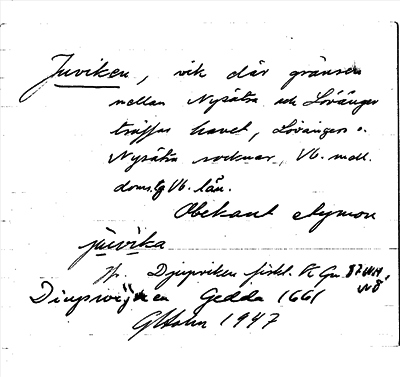 Juviken, vik där gränsen
mellan Nysätra och Lövånger
träffar havet, Lövångers o.
Nysätra socknar, Vb. mell.
doms. Vb. län.
Obekant etymon
juvika
Jfr. Djupviken fiskl. K Gn. 87
Diupwijken Gedda 1661
GHolm 1947